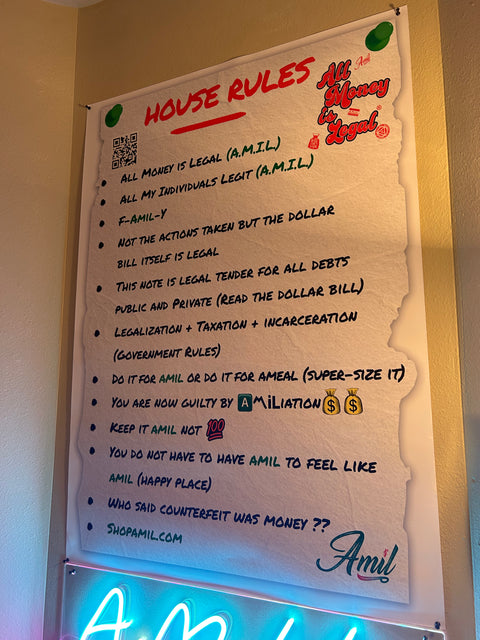 HOUSE RULES
Amil
All
Money
is
Legal
ALL MONEY IS LEGAL (A.M.I.L.)
ALL MY INDIVIDUALS LEGIT (A.M.I.L.)
F-AMIL-Y
NOT THE ACTIONS TAKEN BUT THE DOLLAR
BILL ITSELF IS LEGAL
THIS NOTE IS LEGAL TENDER FOR ALL DEBTS
PUBLIC AND PRIVATE (READ THE DOLLAR BILL)
LEGALIZATION + TAXATION + INCARCERATION
(GOVERNMENT RULES)
DO IT FOR AMIL OR DO IT FOR AMEAL (SUPER-SIZE IT)
YOU ARE NOW GUILTY BY 🅰MiLIATION💰💰
KEEP IT AMIL NOT 💯
YOU DO NOT HAVE TO HAVE AMIL TO FEEL LIKE
AMIL (HAPPY PLACE)
WHO SAID COUNTERFEIT WAS MONEY ??
SHOPAMIL.COM
Amil